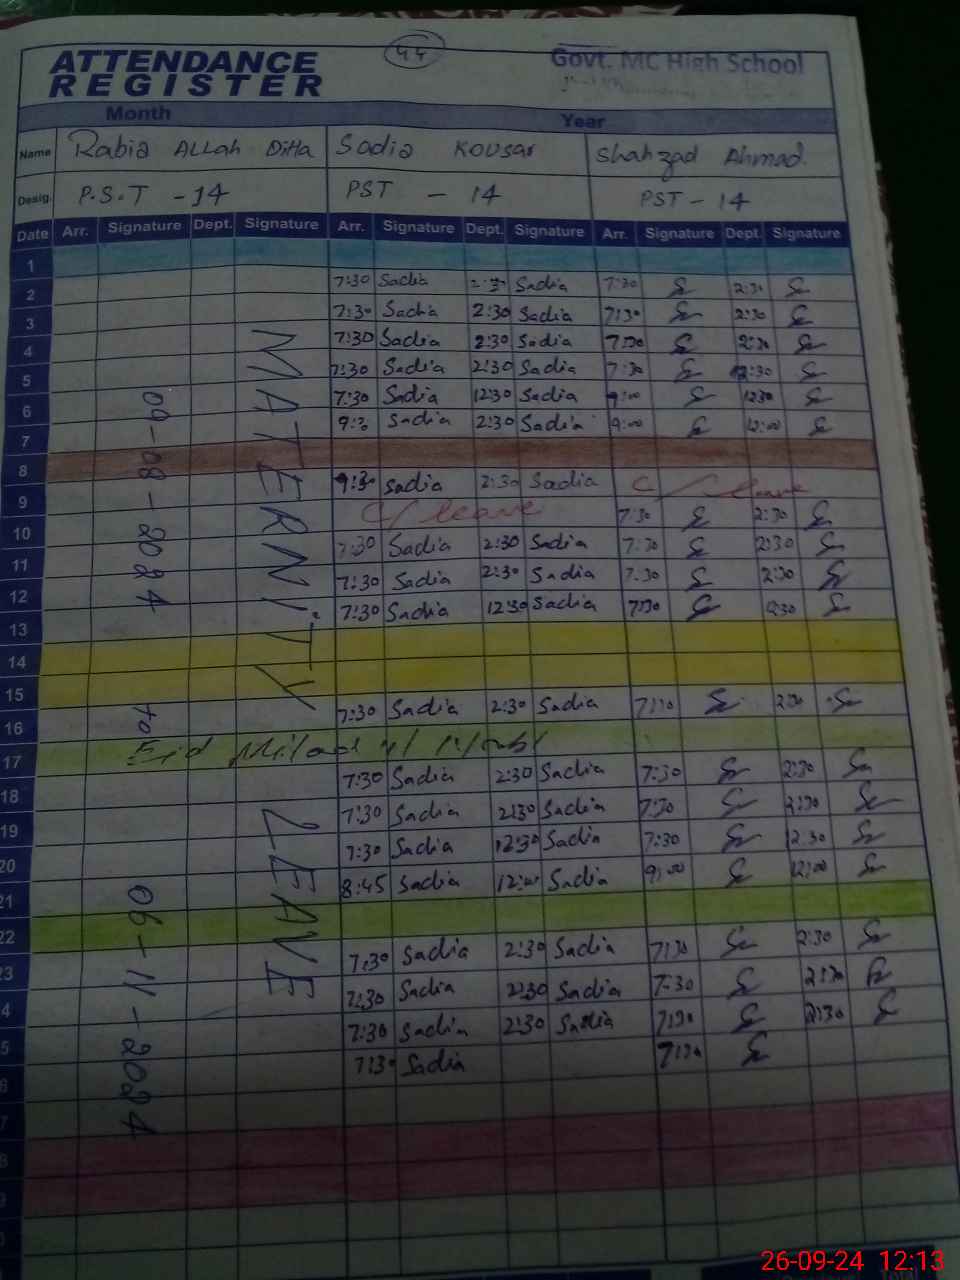 44
ATTENDANCE REGISTER
Govt. MC High School
Month Year
Name Rabia ALLah Ditta Sadia Kousar Shahzad Ahmad.
Desig. P.S.T - 14 PST - 14 PST - 14
Date Arr. Signature Dept. Signature Arr. Signature Dept. Signature Arr. Signature Dept. Signature
MATERNITY LEAVE
09-08-2024 to 06-11-2024
1
2 7:30 Sadia 2:30 Sadia 7:30 2:30
3 7:30 Sadia 2:30 Sadia 7:30 2:30
4 7:30 Sadia 2:30 Sadia 7:30 2:30
5 7:30 Sadia 2:30 Sadia 7:30 12:30
6 7:30 Sadia 12:30 Sadia 9:00 12:30
7 9:30 Sadia 2:30 Sadia 9:00 12:00
8
9 9:30 Sadia 2:30 Sadia C/leave
10 C/leave 7:30 2:30
11 7:30 Sadia 2:30 Sadia 7:30 2:30
12 7:30 Sadia 2:30 Sadia 7:30 2:30
13 7:30 Sadia 12:30 Sadia 7:30
14
15
16 7:30 Sadia 2:30 Sadia 7:30 2:30
17 Eid Milad
18 7:30 Sadia 2:30 Sadia 7:30 2:30
19 7:30 Sadia 2:30 Sadia 7:30 2:30
20 7:30 Sadia 12:30 Sadia 7:30 12:30
21 8:45 Sadia 12:00 Sadia 9:00 12:00
22
23 7:30 Sadia 2:30 Sadia 7:30 2:30
4 7:30 Sadia 2:30 Sadia 7:30 2:30
5 7:30 Sadia 2:30 Sadia 7:30 2:30
6 7:30 Sadia 7:30
7
8
9
26-09-24 12:13